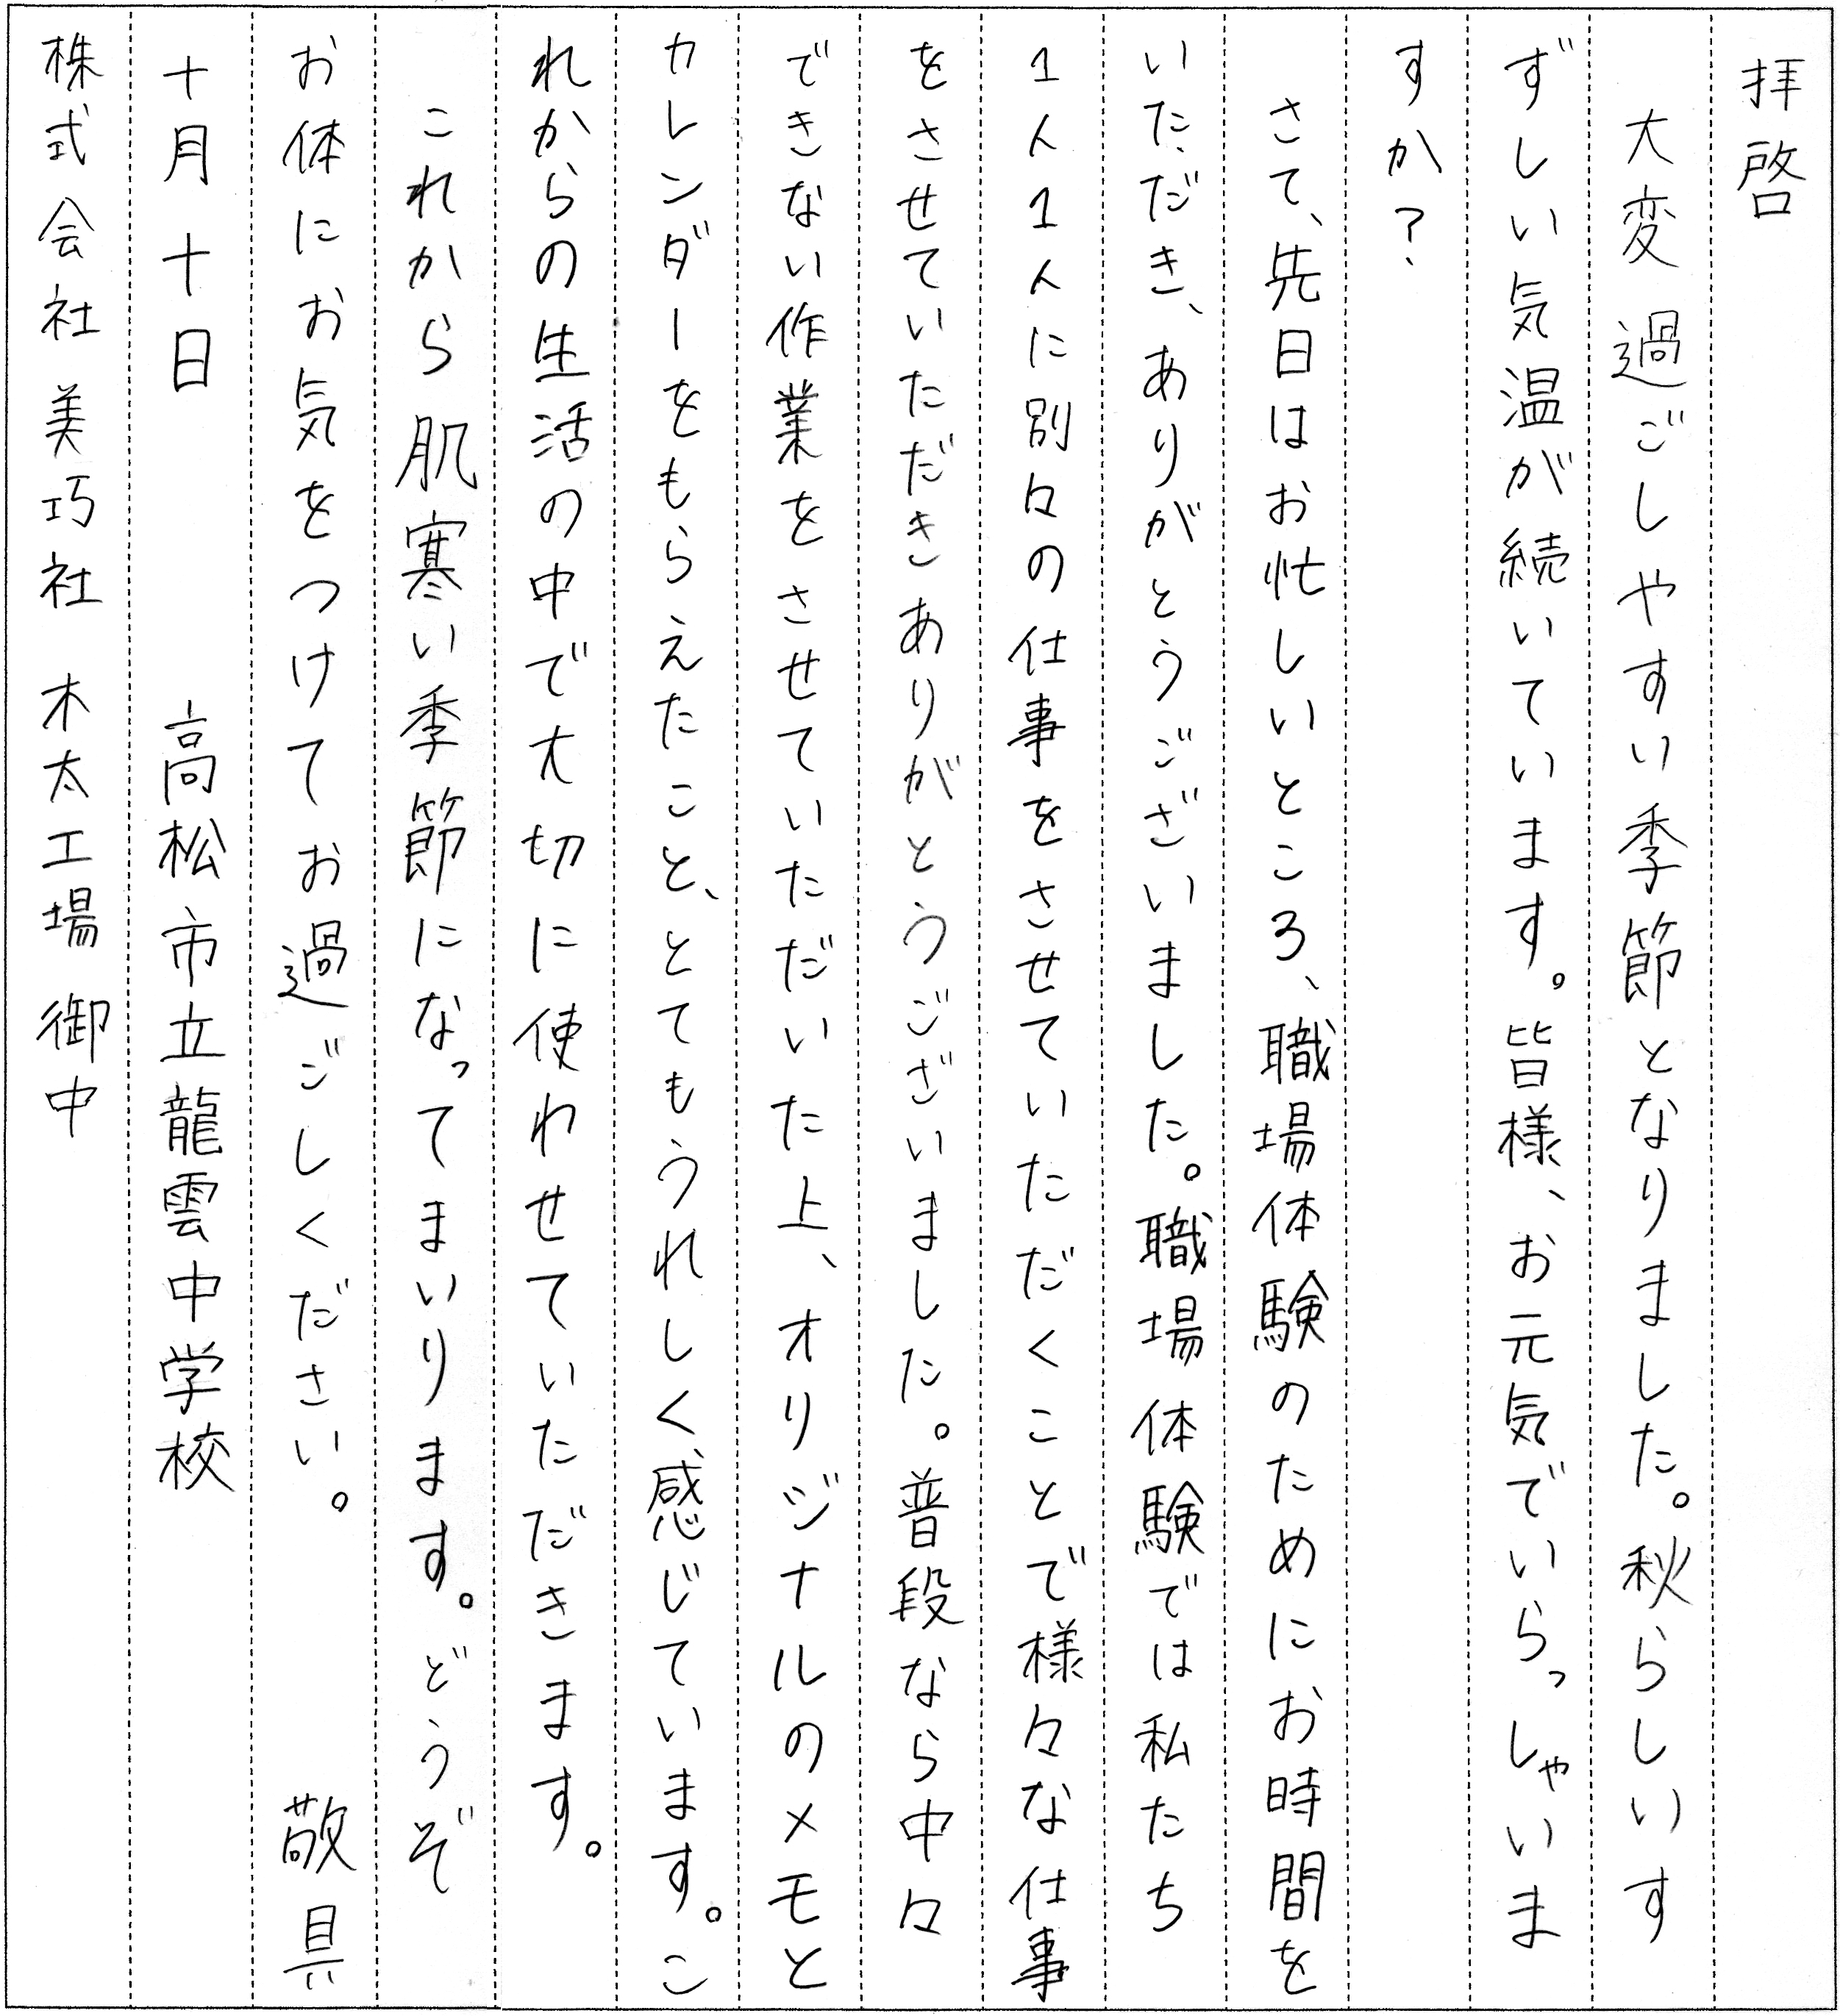 拝啓
大変過ごしやすい季節となりました。秋らしいす
ずしい気温が続いています。皆様、お元気でいらっしゃいま
すか？
さて、先日はお忙しいところ、職場体験のためにお時間を
いただき、ありがとうございました。職場体験では私たち
1人1人に別々の仕事をさせていただくことで様々な仕事
をさせていただきありがとうございました。普段なら中々
できない作業をさせていただいた上、オリジナルのメモと
カレンダーをもらえたこと、とてもうれしく感じています。こ
れからの生活の中で大切に使わせていただきます。
これから肌寒い季節になってまいります。どうぞ
お体にお気をつけてお過ごしください。 敬具
十月十日 高松市立龍雲中学校
株式会社美巧社 木太工場 御中